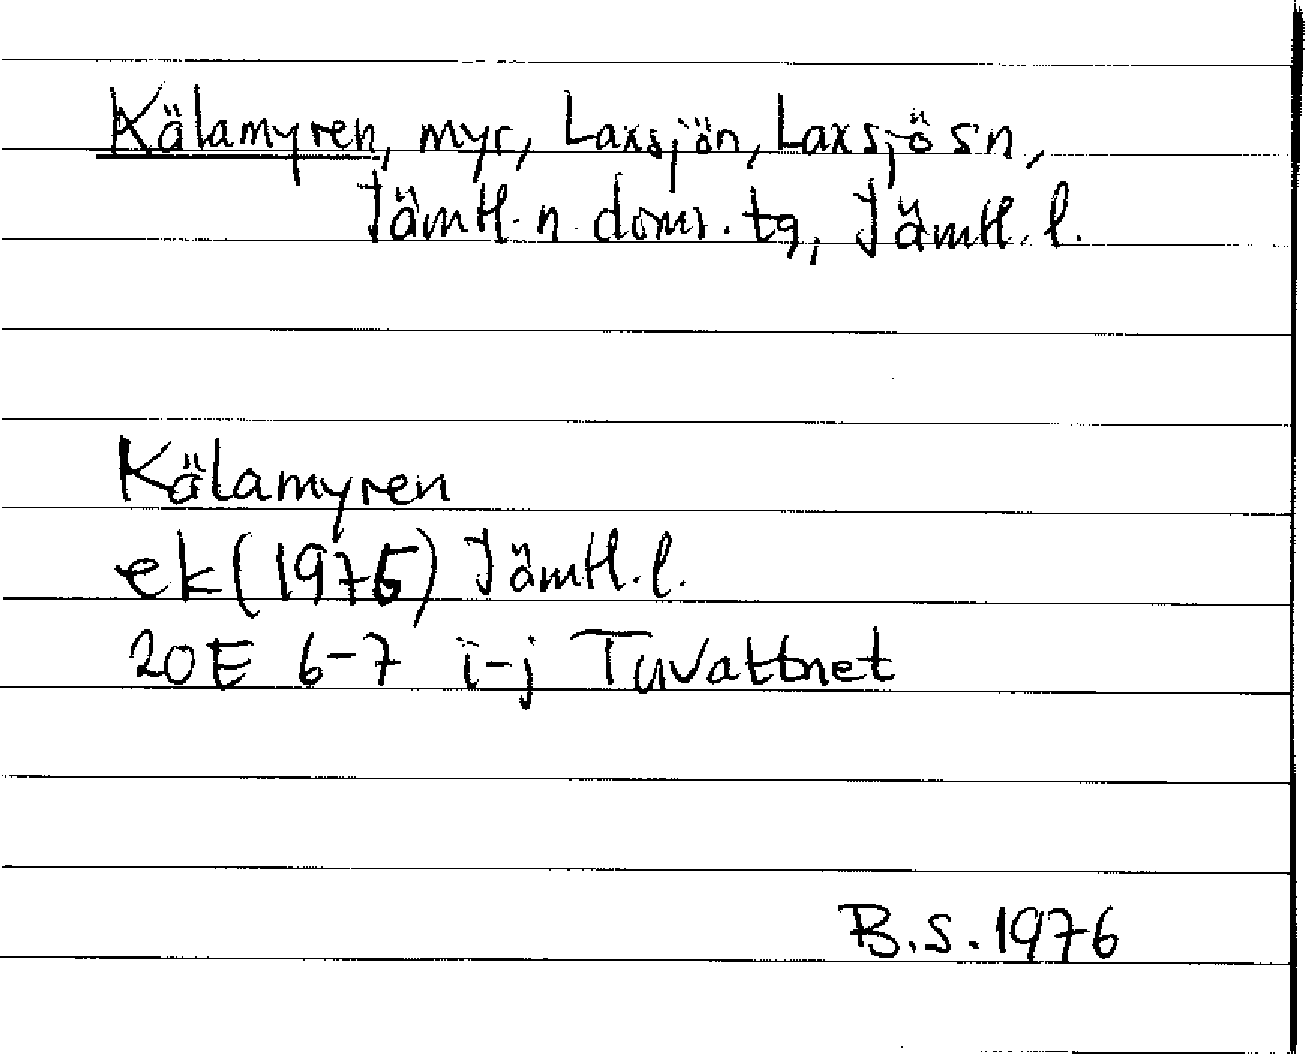 Kälamyren, myr, Laxsjön, Laxsjö sn,
Jämtl. n. doms. tg, Jämtl. l.
Kälamyren
ek (1975) Jämtl. l.
20E 6-7 i-j Tuvattnet
B.S. 1976